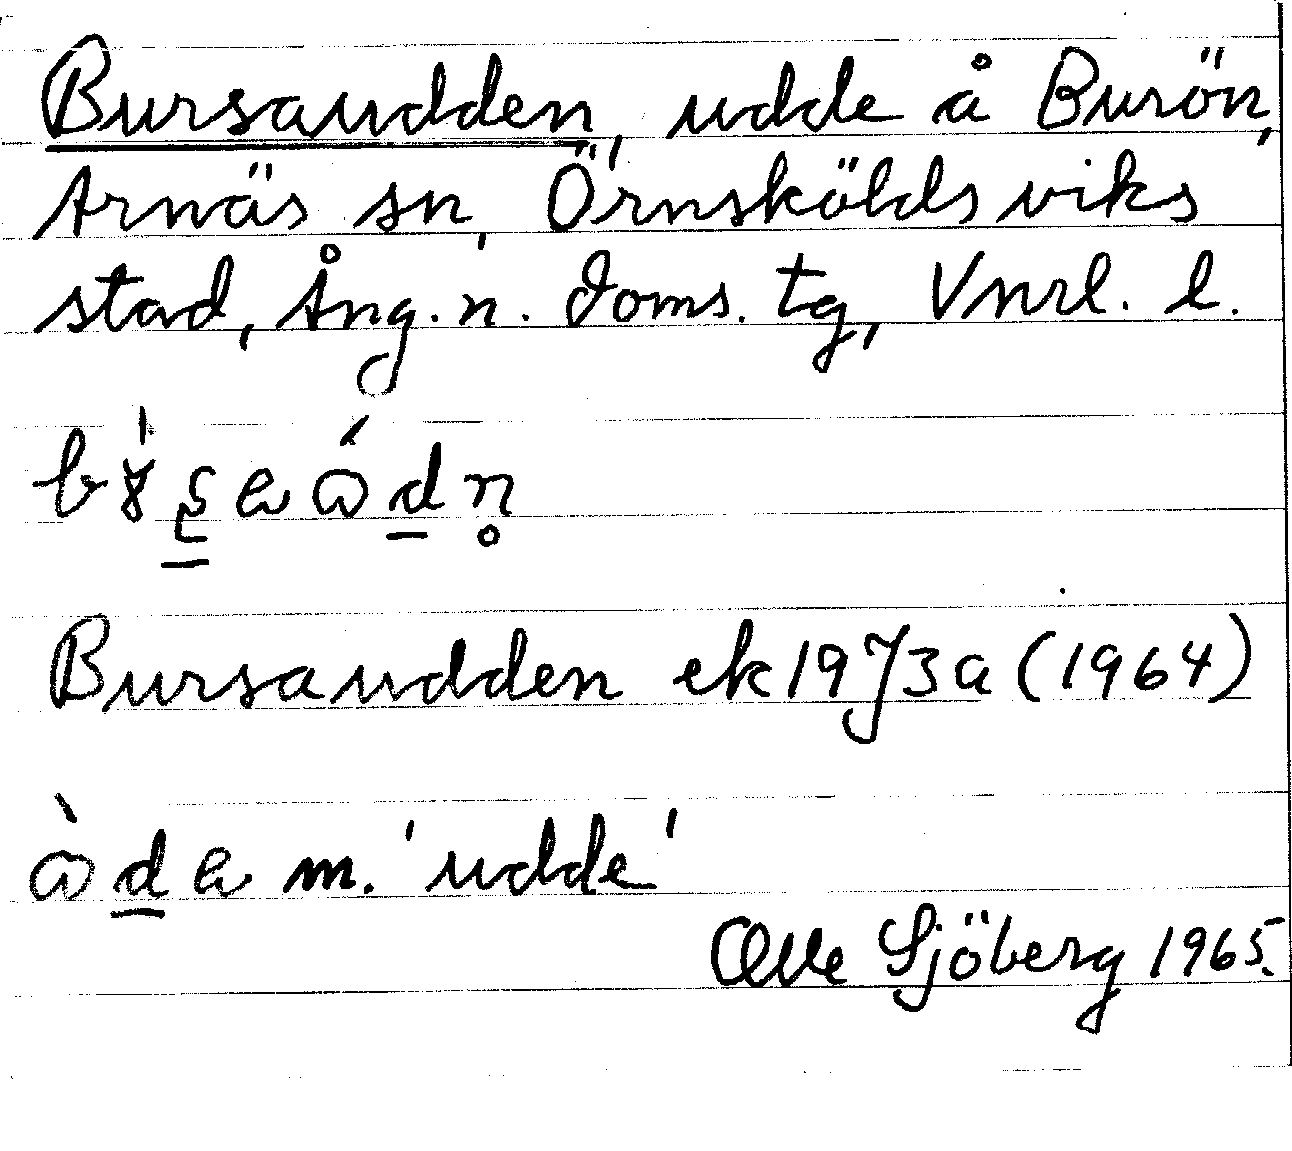 Bursaudden, udde å Burön,
Arnäs sn, Örnsköldsviks
stad, Ång. n. doms. tg, Vnrl. l.
Bursaudden ek 19J3a (1964)
m. 'udde'
Olle Sjöberg 1965.